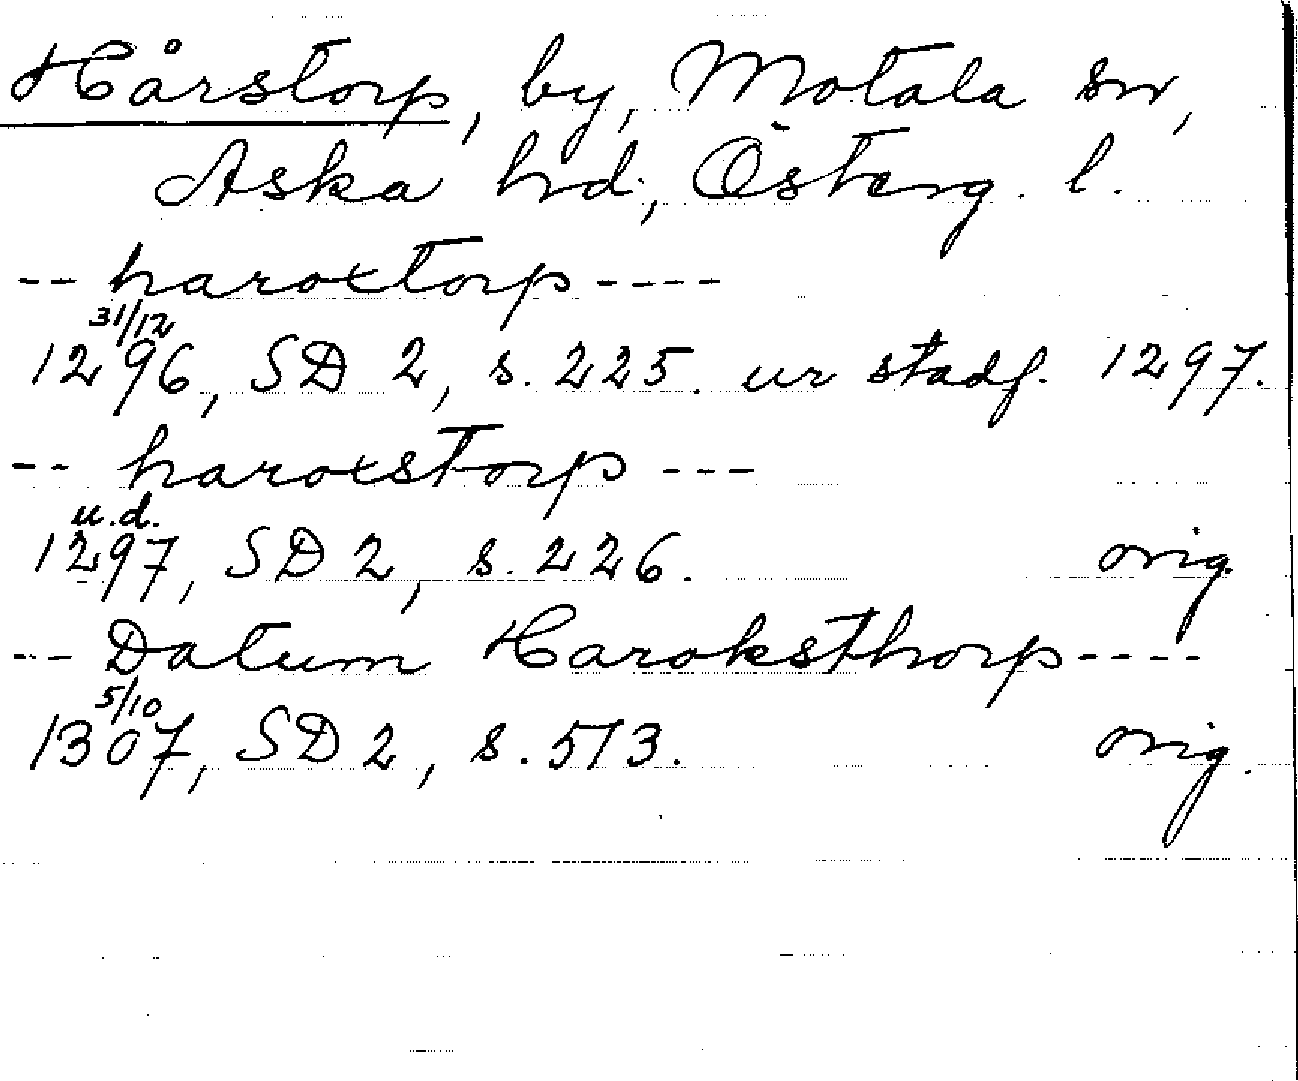 Hårstorp, by, Motala sn,
Aska hd, Österg. l.
-- haroxtorp ----
31/12
1296, SD 2, s. 225. ur stadf. 1297.
-- haroxstorp ---
u.d.
1297, SD 2, s. 226. orig.
-- Datum Haroksthorp ----
5/10
1307, SD 2, s. 513. orig.